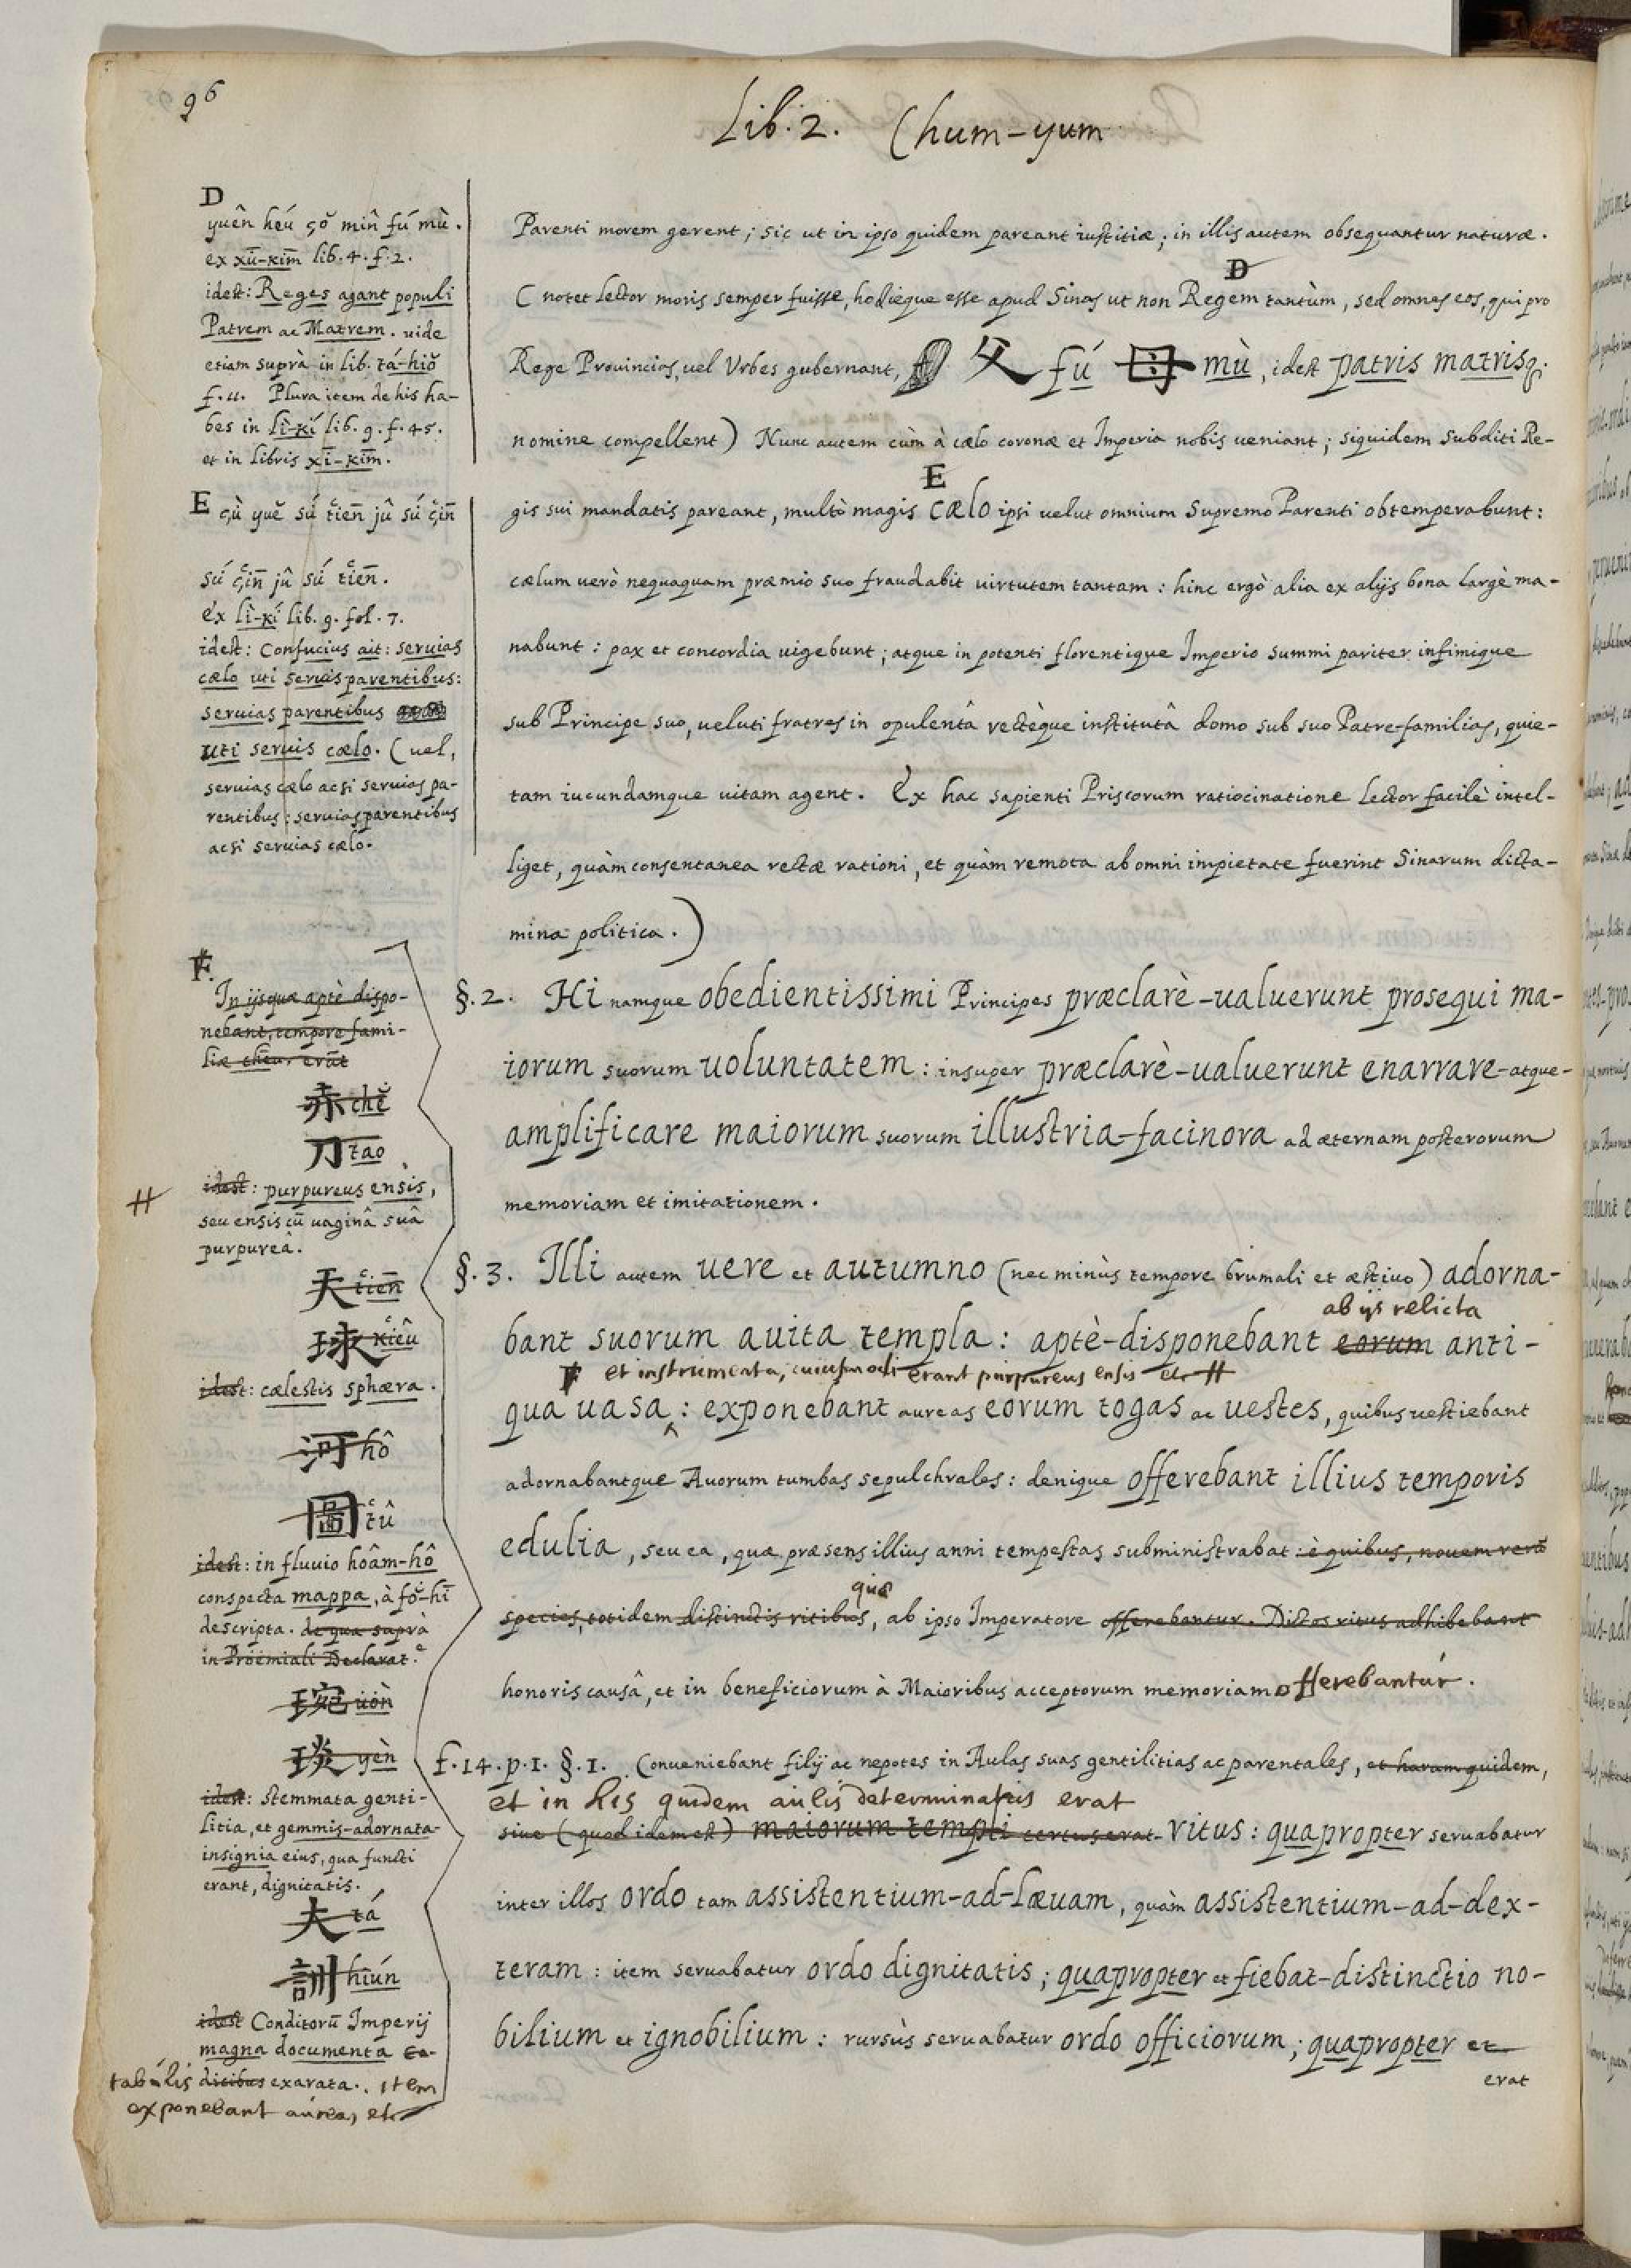 96
Lib. 2. Chum-yum
D
yuên heú çǒ mîn fú mù.
ex xū-kīm lib. 4. f. 2.
idest: Reges agant populi
Patrem ac Matrem. uide
etiam suprà in lib. tá-hiǒ
f. 11. Plura item de his ha-
bes in lì-kí lib. 9. f. 45.
et in libris xī-kīm.
E çù yuě sú tiēn jû sú çīn
sú çīn jû sú tiēn.
ex lì-kí lib. 9. fol. 7.
idest: Confucius ait: seruias
cælo uti seruis parentibus:
seruias parentibus
uti seruis cælo. (uel,
seruias cælo acsi seruias pa-
rentibus: seruias parentibus
acsi seruias cælo.
F.
In ijsquæ aptè dispo-
nebant, tempore fami-
liæ cheu, erāt
赤 chě
刀 tao
idest: purpureus ensis,
seu ensis cū uaginâ suâ
purpureâ.
天 tiēn
球 kiêu
idest: cælestis sphæra.
河 hô
圖 tû
idest: in fluuio hoâm-hô
conspecta mappa, à fǒ-hī
descripta. de qua suprà
in Proëmiali Declarat.e
琬 uòn
琰 yèn
idest: stemmata genti-
litia, et gemmis-adornata-
insignia eius, qua functi
erant, dignitatis.
大 tá
訓 hiún
idest Conditorū Imperij
magna documenta ta-
tabulis ditibus exarata. item
exponebant aureas, etc
Parenti morem gerent; sic ut in ipso quidem pareant iustitiæ; in illis autem obsequantur naturæ.
D
(notet Lector moris semper fuisse, hodieque esse apud Sinas ut non Regem tantùm, sed omnes eos, qui pro
Rege Prouincias, uel Vrbes gubernant, 父 fú 母 mù, idest patris matrisq.
nomine compellent) Nunc autem cùm à cælo coronæ et Imperia nobis ueniant; siquidem subditi Re-
E
gis sui mandatis pareant, multò magis cælo ipsi uelut omnium Supremo Parenti obtemperabunt:
cælum uerò nequaquam præmio suo fraudabit uirtutem tantam: hinc ergò alia ex alijs bona largè ma-
nabunt: pax et concordia uigebunt; atque in potenti florentique Imperio summi pariter infimique
sub Principe suo, ueluti fratres in opulentâ rectèque institutâ domo sub suo Patre-familias, quie-
tam iucundamque uitam agent. Ex hac sapienti Priscorum ratiocinatione Lector facilè intel-
liget, quàm consentanea rectæ rationi, et quàm remota ab omni impietate fuerint Sinarum dicta-
mina politica.)
§. 2. Hi namque obedientissimi Principes præclarè-ualuerunt prosequi ma-
iorum suorum uoluntatem: insuper præclarè-ualuerunt enarrare-atque-
amplificare maiorum suorum illustria-facinora ad æternam posterorum
memoriam et imitationem.
§. 3. Illi autem uere et autumno (nec minùs tempore brumali et æstiuo) adorna-
ab ijs relicta
bant suorum auita templa: aptè-disponebant eorum anti-
F et instrumenta, cuiusmodi erant purpureus ensis etc #
qua uasa: exponebant aureas eorum togas ac uestes, quibus uestiebant
adornabantque Auorum tumbas sepulchrales: denique offerebant illius temporis
edulia, seu ea, quæ præsens illius anni tempestas subministrabat: è quibus, nouem uerò
quæ
species, totidem distinctis ritibus, ab ipso Imperatore offerebantur. Dictos ritus adhibebant
honoris causâ, et in beneficiorum à Maioribus acceptorum memoriam offerebantur.
f. 14. p. 1. §. 1. Conueniebant filij ac nepotes in Aulas suas gentilitias ac parentales, et harum quidem,
et in his quidem aulis determinatis erat
siue (quod idem est) maiorum templi certus erat ritus: quapropter seruabatur
inter illos ordo tam assistentium-ad-læuam, quàm assistentium-ad-dex-
teram: item seruabatur ordo dignitatis; quapropter et fiebat-distinctio no-
bilium et ignobilium: rursùs seruabatur ordo officiorum; quapropter et
erat